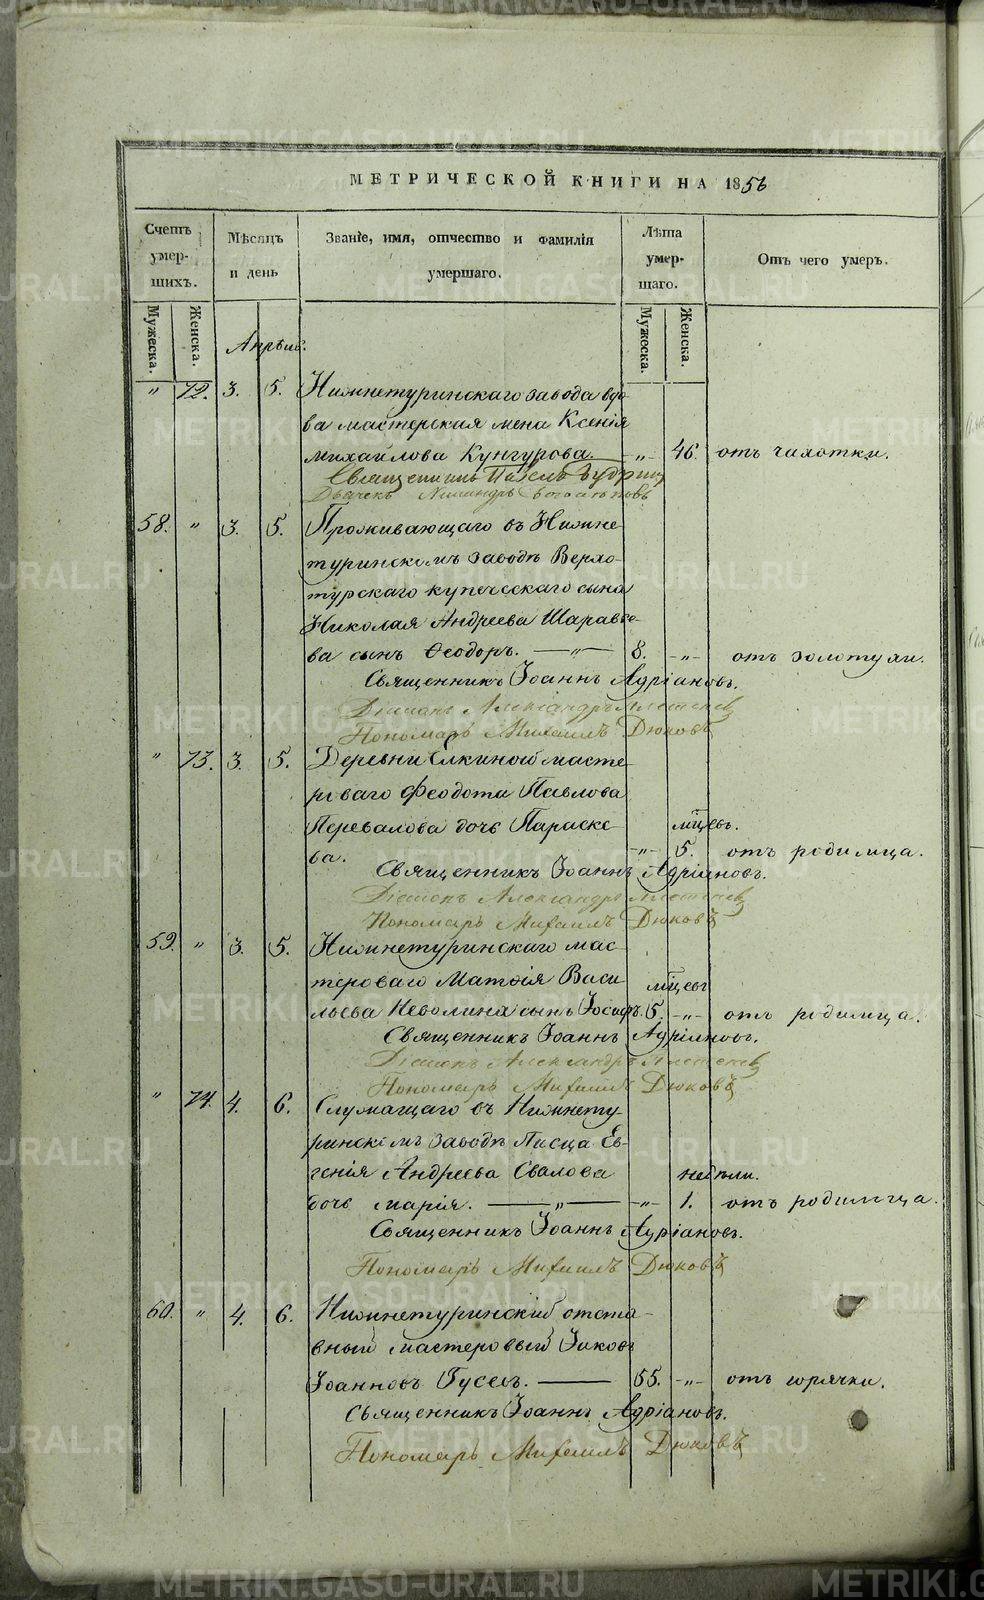 МЕТРИЧЕСКОЙ КНИГИ НА 1856
Счетъ умершихъ. Мѣсяцъ и день Званіе, имя, отчество и фамилія умершаго. Лѣта умершаго. Отъ чего умеръ.
Мужеска. Женска. Мужеска. Женска.
Апрѣль.
" 72. 3. 5. Нижнетуринскаго завода вдо-
ва мастерская жена Ксенія
Михайлова Кунгурова. - " - 46. отъ чахотки.
Священникъ Павелъ
Дьячекъ
58. " 3. 5. Проживающаго въ Нижне-
туринскомъ заводѣ Верхо-
турскаго купеческаго сына
Николая Андреева
ва сынъ Ѳеодоръ. - " - 8. - " - отъ золотухи.
Священникъ Іоаннъ Адріановъ.
Діаконъ Александръ
Пономарь Михаилъ Дюковъ
" 73. 3. 5. Деревни Елкиной масте-
роваго Феодота Павлова
Перевалова дочь Параске- мѣсяцевъ.
ва. - " - 5. отъ родимца.
Священникъ Іоаннъ Адріановъ.
Діаконъ Александръ
Пономарь Михаилъ Дюковъ
59. " 3. 5. Нижнетуринскаго мас-
тероваго Матѳія Васи- мѣсяцевъ
льева Неволина сынъ Іосифъ. 5. - " - отъ родимца.
Священникъ Іоаннъ Адріановъ.
Діаконъ Александръ
Пономарь Михаилъ Дюковъ
" 74. 4. 6. Служащаго въ Нижнету-
ринскомъ заводѣ Писца Ев-
генія Андреева Свалова недѣли.
дочь Марія. - " - - " - 1. отъ родимца.
Священникъ Іоаннъ Адріановъ.
Пономарь Михаилъ Дюковъ
60. " 4. 6. Нижнетуринскій отста-
вный мастеровый Іаковъ
Іоанновъ Гусевъ. 55. - " - отъ горячки.
Священникъ Іоаннъ Адріановъ.
Пономарь Михаилъ Дюковъ
METRIKI.GASO-URAL.RU